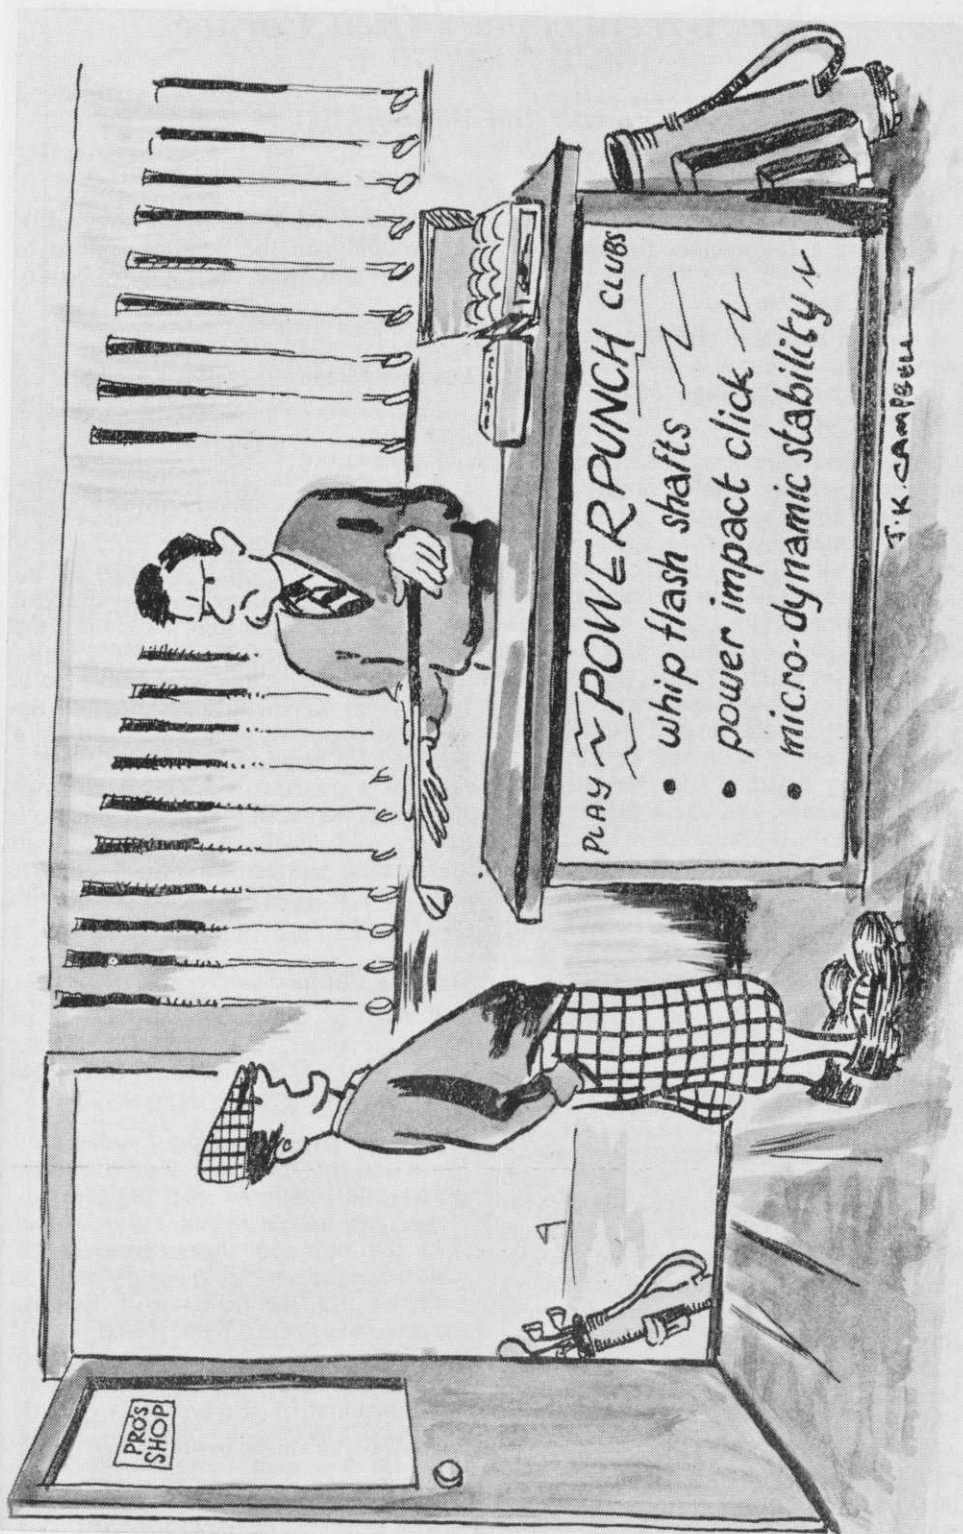 PRO'S
SHOP
PLAY POWERPUNCH CLUBS
• whip flash shafts
• power impact click
• micro-dynamic stability
J.K. CAMPBELL